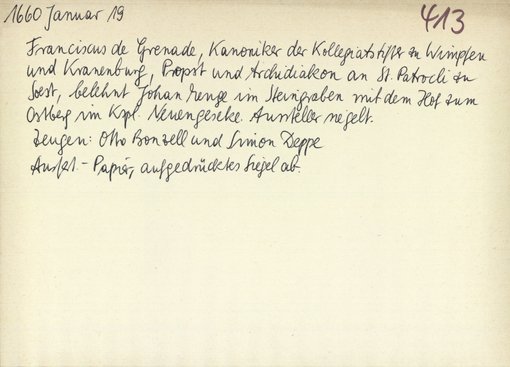 1660 Januar 19
413
Franciscus de Grenade, Kanoniker der Kollegiatstifter zu Wimpfen
und Kranenburg, Propst und Archidiakon an St. Patrocli zu
Soest, belehnt Johan Menge im Steingraben mit dem Hof zum
Ostberg im Kspl. Neuengeseke. Aussteller siegelt.
Zeugen: Otto Bonzell und Simon Deppe
Ausf. - Papier, aufgedrücktes Siegel ab.